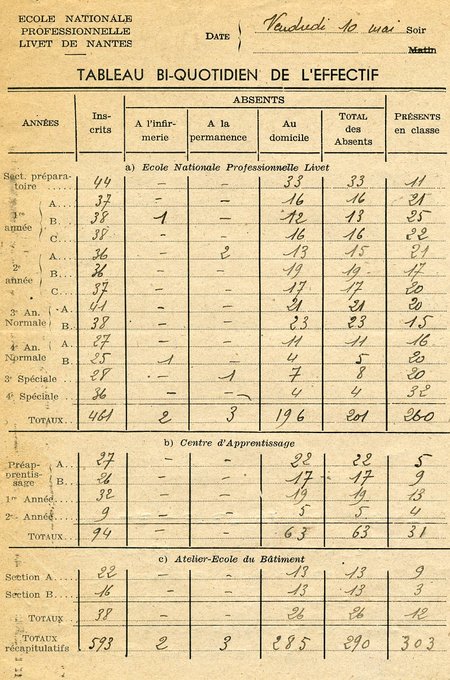 ECOLE NATIONALE
PROFESSIONNELLE
LIVET DE NANTES
DATE Vendredi 10 mai Soir
Matin
TABLEAU BI-QUOTIDIEN DE L'EFFECTIF
ANNÉES Ins-crits ABSENTS PRÉSENTS en classe
A l'infir-merie A la permanence Au domicile TOTAL des Absents
a) Ecole Nationale Professionnelle Livet
Sect. prépara-
toire 44 - - 33 33 11
1re année A. 37 - - 16 16 21
B. 38 1 - 12 13 25
C. 38 - - 16 16 22
2e année A. 36 - 2 13 15 21
B. 36 - - 19 19 17
C. 37 - - 17 17 20
3e An. Normale A. 41 - - 21 21 20
B. 38 - - 23 23 15
4e An. Normale A. 27 - - 11 11 16
B. 25 1 - 4 5 20
3e Spéciale 28 - 1 7 8 20
4e Spéciale 36 - - 4 4 32
TOTAUX 461 2 3 196 201 260
b) Centre d'Apprentissage
Préap-prentis-sage A. 27 - - 22 22 5
B. 26 - - 17 17 9
1re Année 32 - - 19 19 13
2e Année 9 - - 5 5 4
TOTAUX 94 - - 63 63 31
c) Atelier-Ecole du Bâtiment
Section A 22 - - 13 13 9
Section B 16 - - 13 13 3
TOTAUX 38 - - 26 26 12
TOTAUX
récapitulatifs 593 2 3 285 290 303